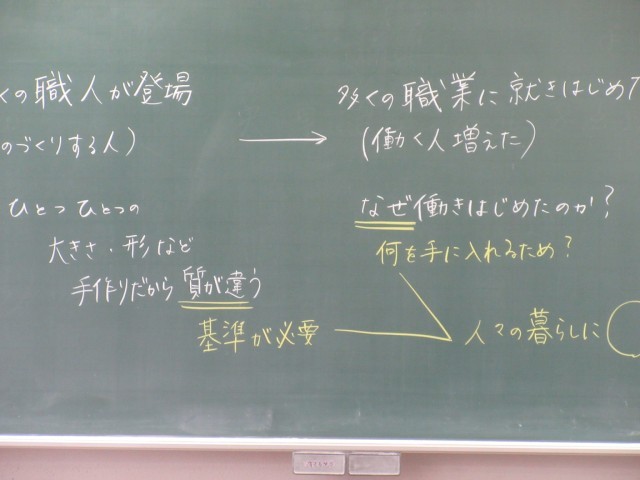 くの職人が登場
のづくりする人)
ひとつひとつの
大きさ・形など
手作りだから質が違う
基準が必要
多くの職業に就きはじめた
(働く人増えた)
なぜ働きはじめたのか?
何を手に入れるため?
人々の暮らしに